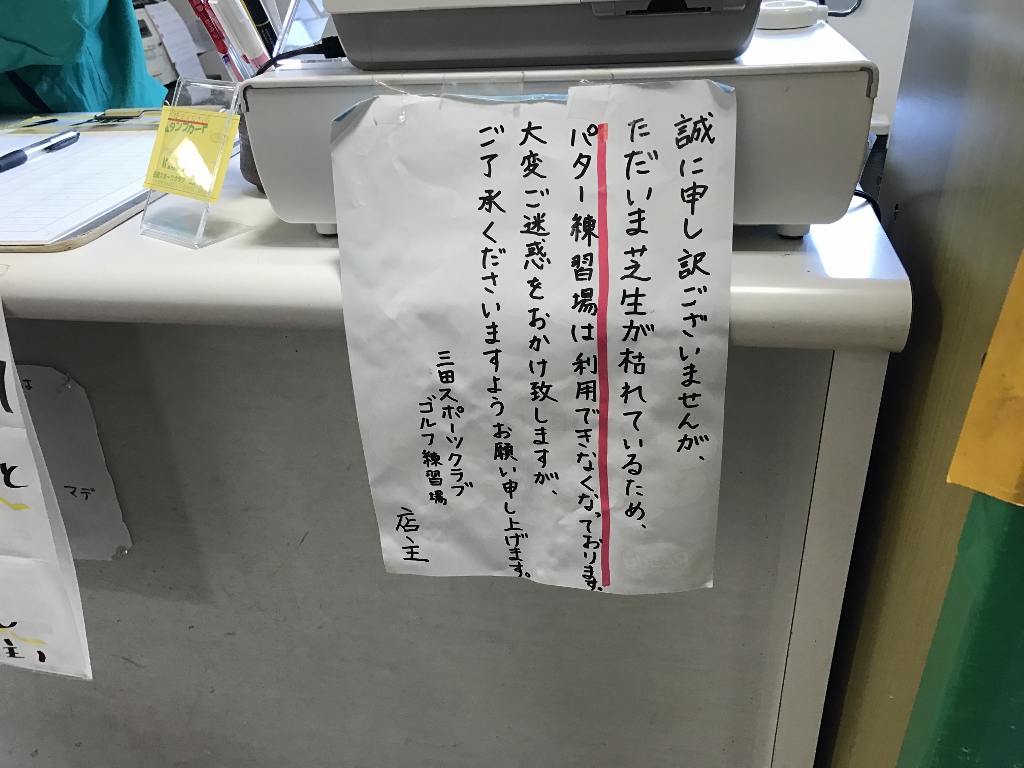 誠に申し訳ございませんが、
ただいま芝生が枯れているため、
パター練習場は利用できなくなっております。
大変ご迷惑をおかけ致しますが、
ご了承くださいますようお願い申し上げます。
三田スポーツクラブ
ゴルフ練習場
店主
マデ
と